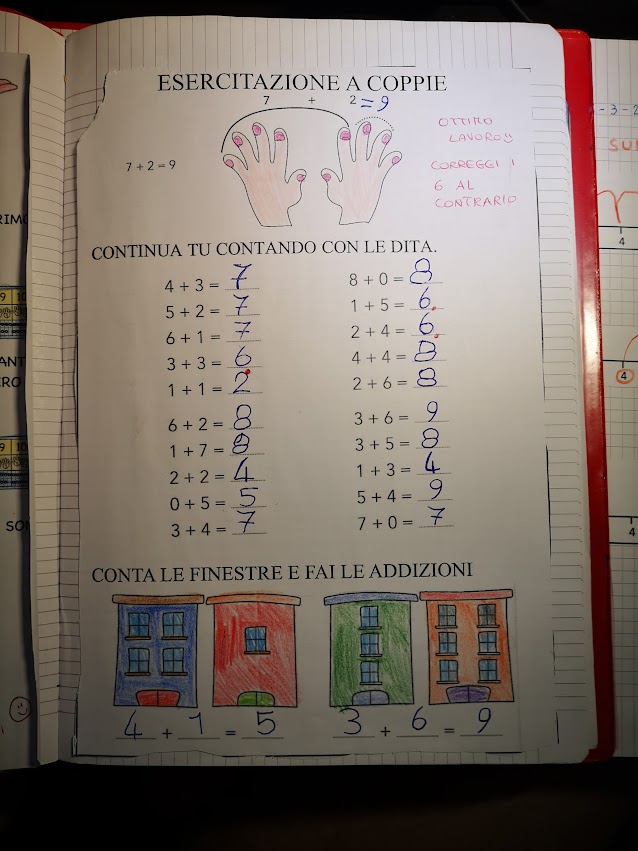 ESERCITAZIONE A COPPIE
7 + 2 = 9
7 + 2 = 9
OTTIMO
LAVORO
CORREGGI I
6 AL
CONTRARIO
CONTINUA TU CONTANDO CON LE DITA.
4 + 3 = 7
5 + 2 = 7
6 + 1 = 7
3 + 3 = 6
1 + 1 = 2
6 + 2 = 8
1 + 7 = 8
2 + 2 = 4
0 + 5 = 5
3 + 4 = 7
8 + 0 = 8
1 + 5 = 6
2 + 4 = 6
4 + 4 = 8
2 + 6 = 8
3 + 6 = 9
3 + 5 = 8
1 + 3 = 4
5 + 4 = 9
7 + 0 = 7
CONTA LE FINESTRE E FAI LE ADDIZIONI
4 + 1 = 5
3 + 6 = 9
9 10
-3-2
4
4
4